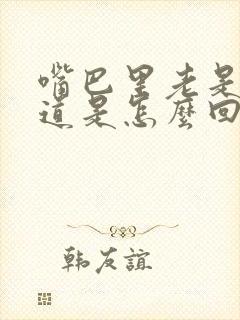 嘴巴里老是
道是怎麼回
韩友誼